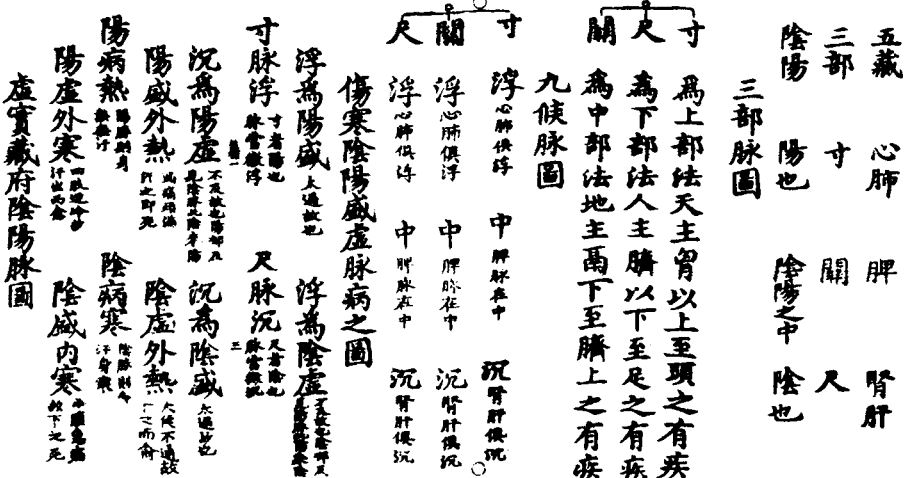 五藏 心肺 脾 腎肝
三部 寸 關 尺
陰陽 陽也 陰陽之中 陰也
三部脉圖
寸 為上部法天主胷以上至頭之有疾
尺 為下部法人主臍以下至足之有疾
關 為中部法地主鬲下至臍上之有疾
九候脉圖
寸 浮心肺俱浮 中脾脉在中 沉腎肝俱沉
關 浮心肺俱浮 中脾脉在中 沉腎肝俱沉
尺 浮心肺俱浮 中脾脉在中 沉腎肝俱沉
傷寒陰陽盛虛脉病之圖
浮為陽盛太過故也 浮為陰虛
寸脉浮寸者陽也脉當微浮 尺脉沉尺者陰也脉當微沉
沉為陽虛 沉為陰盛太過故也
陽盛外熱 陰虛外熱
陽病熱 陰病寒
陽虛外寒 陰盛內寒
虛實藏府陰陽脉圖